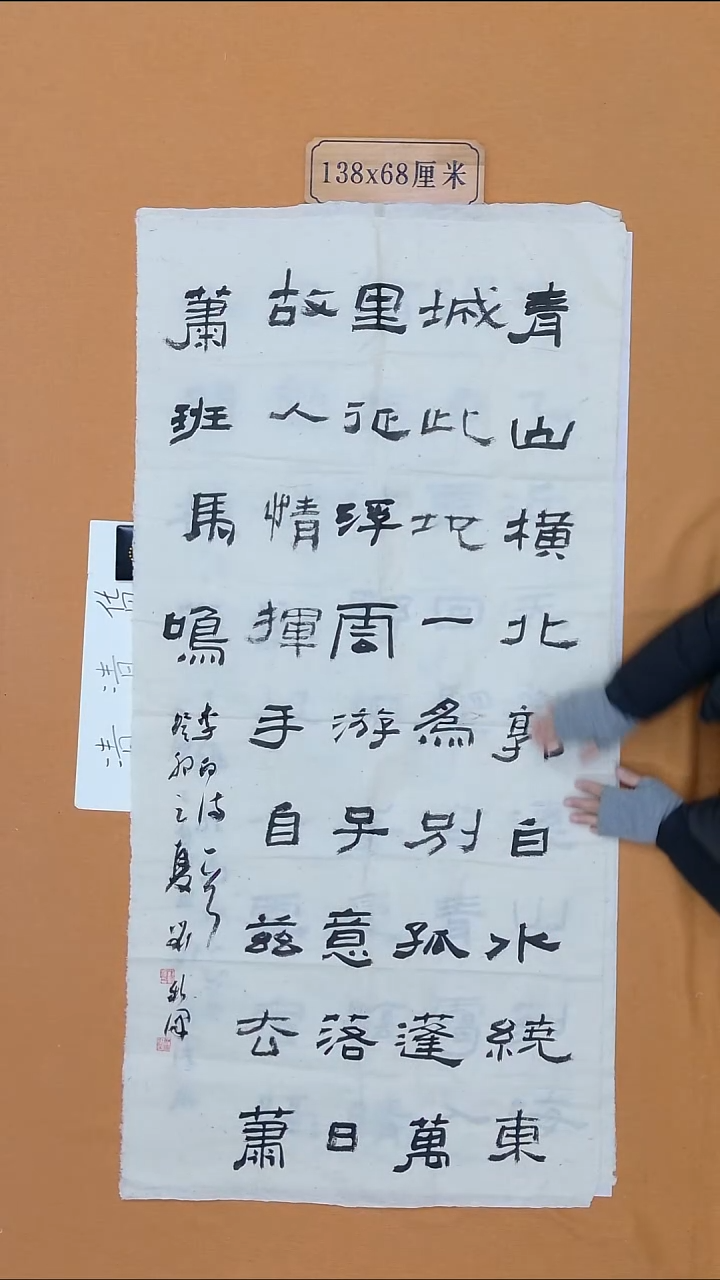 138x68厘米
青山橫北郭白水繞東
城此地一爲別孤蓬萬
里征浮雲游子意落日
故人情揮手自茲去蕭
蕭班馬鳴
李白诗一首
癸卯之夏